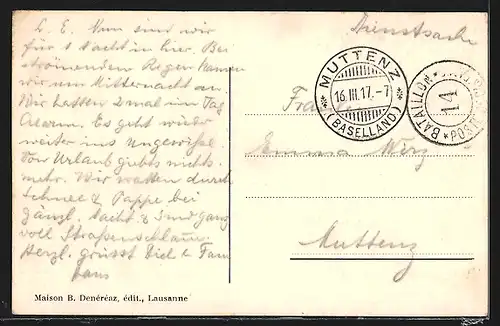 L. E. Nun sind wir
für 1 Nacht in hier. Bei
strömendem Regen kamen
wir um Mitternacht an
Wir hatten 2 mal im Tag
Alarm. Es geht wieder
weiter ins Ungewisse.
Von Urlaub giebts nichts
mehr. Wir waten durch
Schnee & Pappe bei
Nacht &
voll Strassenschlamm
Herzl. grüsst Dich & Fam
Hans
Maison B. Denéréaz, édit., Lausanne
Dienstsache
MUTTENZ
16.III.17.-7
(BASELLAND)
BATAILLON
141
Emma Wirz
Muttenz